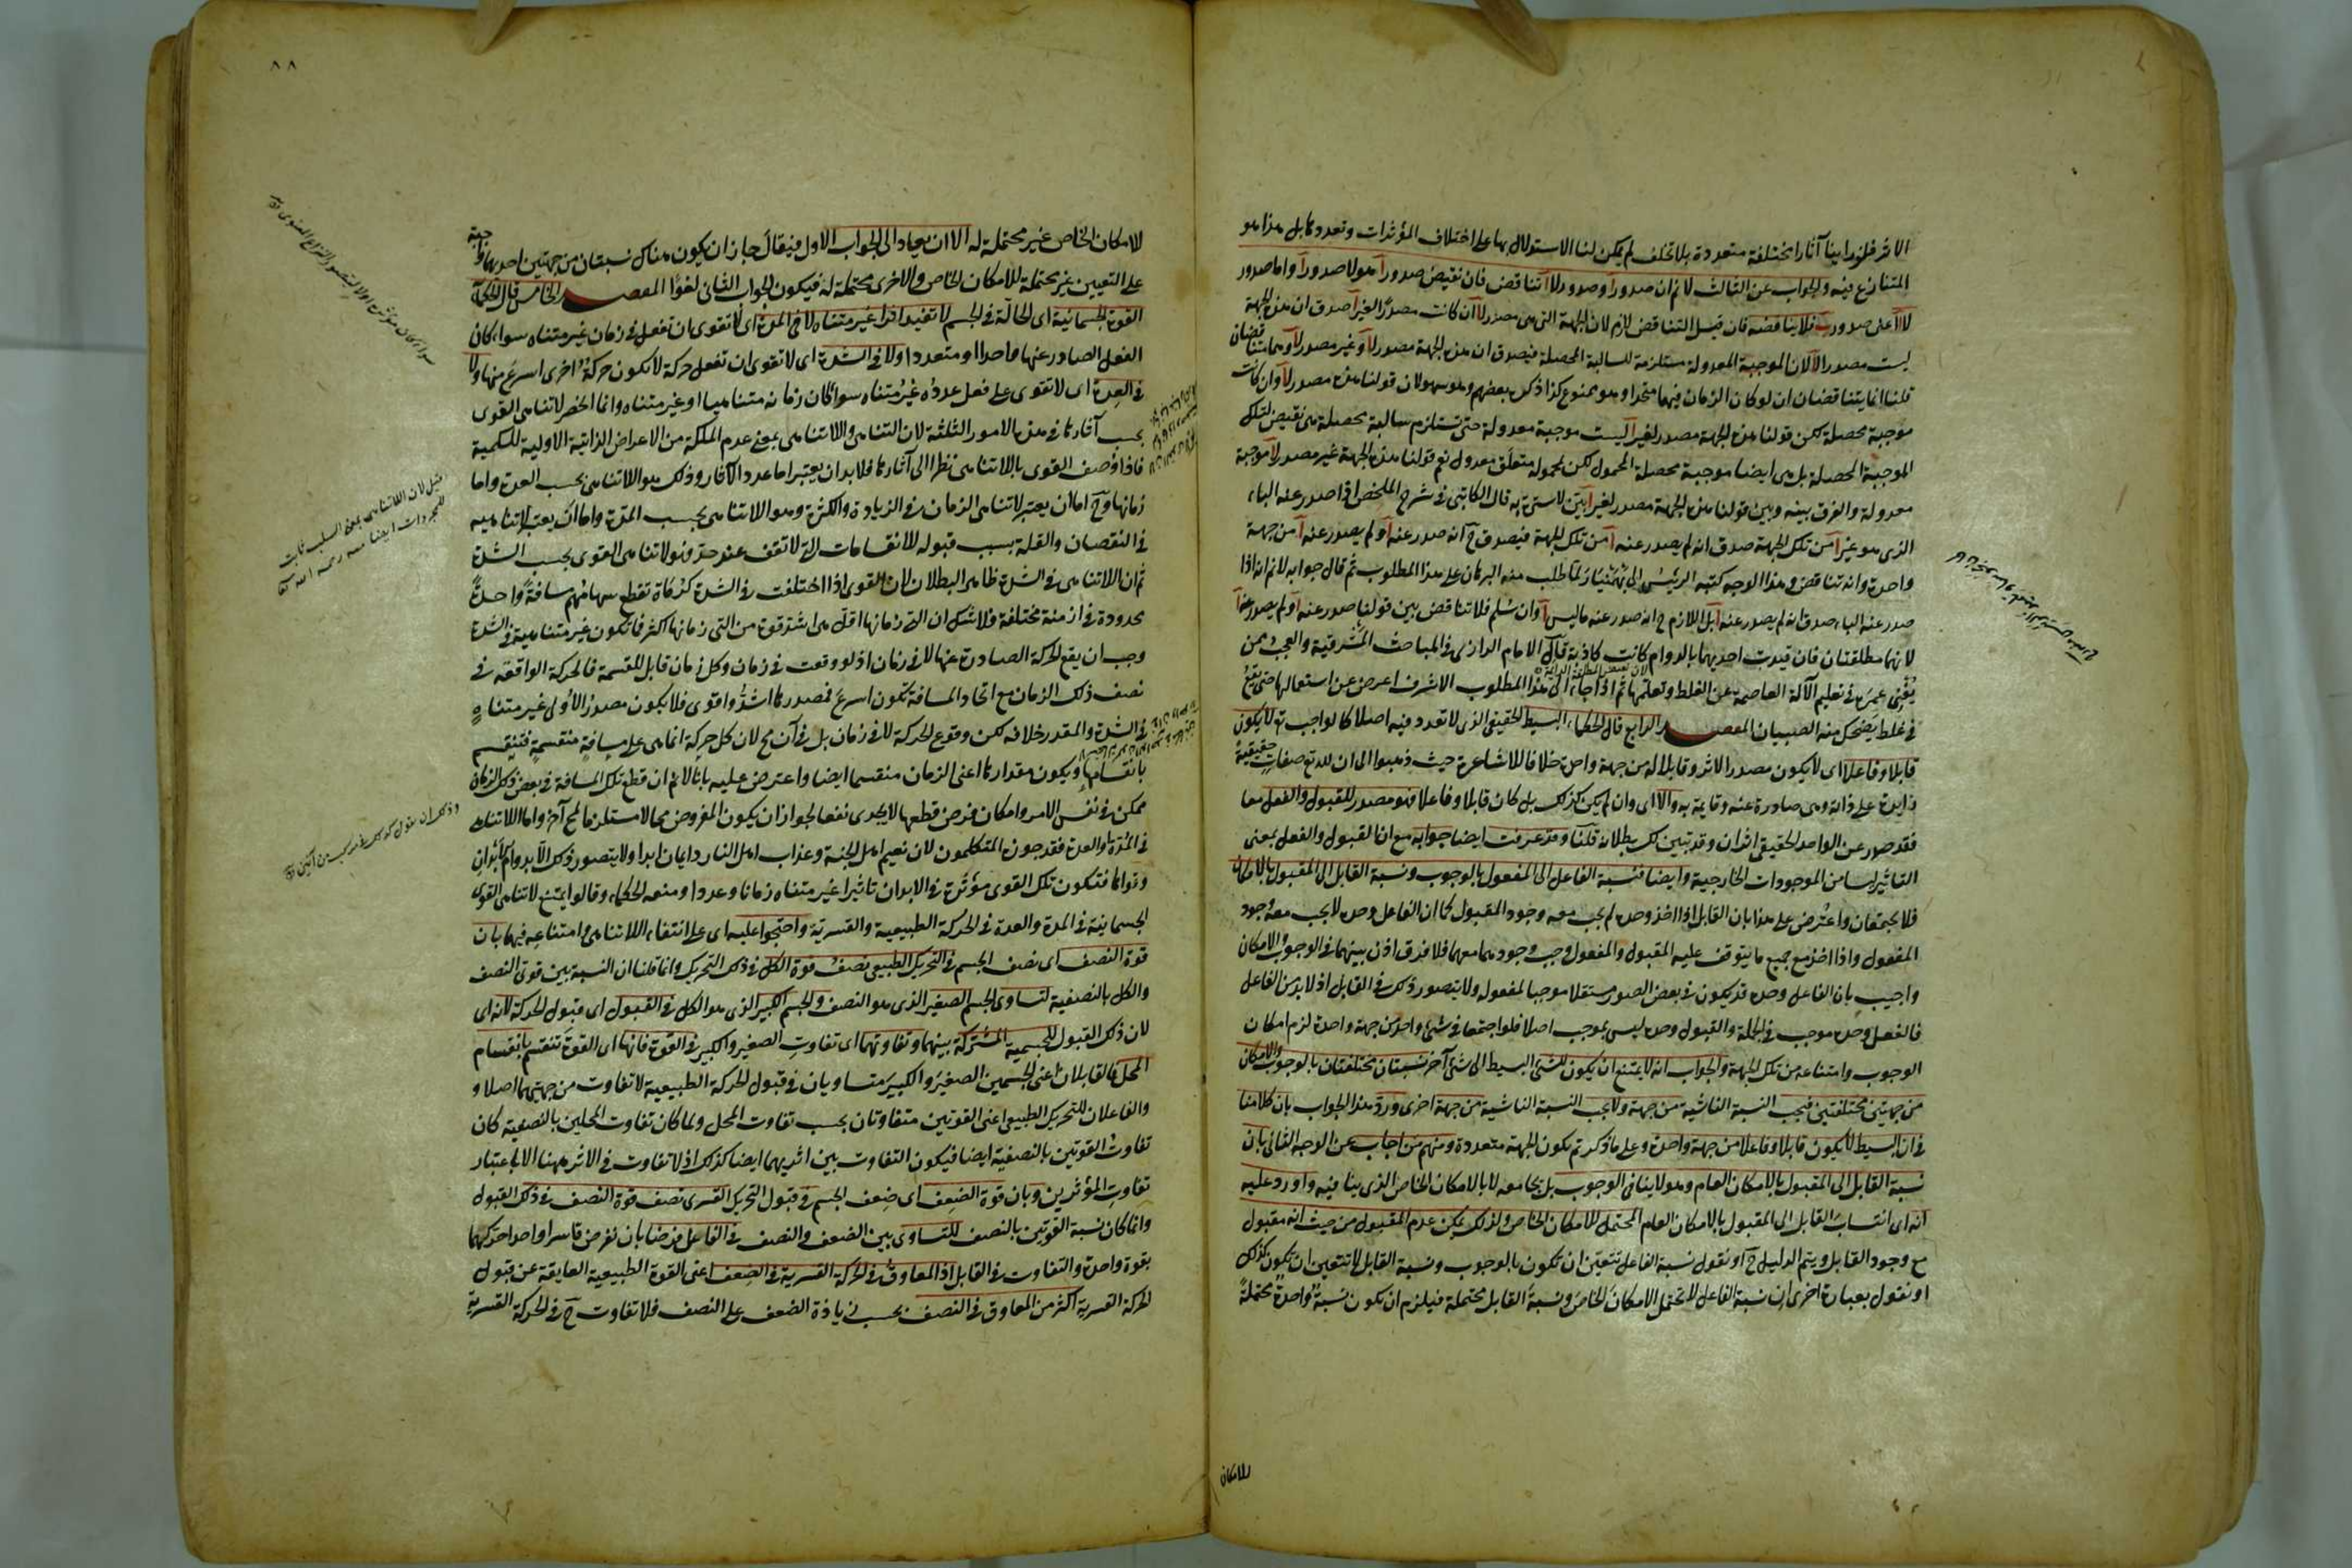 الاثر فلو راينا آثارا مختلفة متعددة بلا تخلف لم يمكن لنا الاستدلال بها على اختلاف المؤثرات وتعددها بل هذا هو
المتنازع فيه والجواب عن الثالث لا نم ان صدور آ وصدور لا آ تناقض فان نقيض صدور آ هو لا صدور آ واما صدور
لا آ اعنى صدور ب فلا يناقضه فان قيل التناقض لازم لان الجهة التى هى مصدر لآ ان كانت مصدرا لغير آ صدق ان هذه الجهة
ليست مصدرا لآ لان الموجبة المعدولة مستلزمة للسالبة المحصلة فيصدق ان هذه الجهة مصدر لآ وغير مصدر لآ وهما متناقضان
قلنا انما يتناقضان ان لو كان الزمان فيهما متحدا وهو ممنوع كذا ذكره بعضهم وهو سهو لان قولنا هذه مصدر لآ وان كانت
موجبة محصلة لكن قولنا هذه الجهة مصدر لغير آ ليست موجبة معدولة حتى تستلزم سالبة محصلة هى نقيض لتلك
الموجبة المحصلة بل هى ايضا موجبة محصلة المحمول لكن لمحموله متعلق معدول نعم قولنا هذه الجهة غير مصدر لآ موجبة
معدولة والفرق بينه وبين قولنا هذه الجهة مصدر لغير آ بين لا سترة به قال الكاتبى فى شرح الملخص اذا صدر عنه الباء
الذى هو غير آ من تلك الجهة صدق انه لم يصدر عنه آ من تلك الجهة فيصدق ح انه صدر عنه آ ولم يصدر عنه آ من جهة
واحدة وانه تناقض وهذا الوجه كتبه الرئيس الى بهمنيار لما طلب منه البرهان على هذا المطلوب ثم قال جوابه لا نم انه اذا
صدر عنه الباء صدق انه لم يصدر عنه آ بل اللازم ح انه صدر عنه ما ليس آ وان سلم فلا تناقض بين قولنا صدر عنه آ ولم يصدر عنه آ
لانهما مطلقتان فان قيدت احديهما بالدوام كانت كاذبة قال الامام الرازى فى المباحث المشرقية والعجب ممن
يفنى عمره فى تعليم الآلة العاصمة عن الغلط وتعلمها ثم اذا جاء الى هذا المطلوب الاشرف اعرض عن استعمالها حتى يقع
فى غلط يضحك منه الصبيان المقصد الرابع قال الحكماء البسيط الحقيقى الذى لا تعدد فيه اصلا كالواجب تع لا يكون
قابلا وفاعلا اى لا يكون مصدر الاثر وقابلا له من جهة واحدة خلافا للاشاعرة حيث ذهبوا الى ان لله تع صفات حقيقية
زايدة على ذاته وهى صادرة عنه وقايمة به والا اى وان لم يكن كذلك بل كان قابلا وفاعلا فهو مصدر للقبول والفعل معا
فقد صدر عن الواحد الحقيقى اثران وقد تبين لك بطلانه قلنا وقد عرفت ايضا جوابه مع ان القبول والفعل بمعنى
التاثير ليسا من الموجودات الخارجية وايضا فنسبة الفاعل الى المفعول بالوجوب ونسبة القابل الى المقبول بالامكان
فلا يجتمعان واعترض على هذا بان القابل اذا اخذ وحده لم يجب معه وجود المقبول كما ان الفاعل وحده لا يجب معه وجود
المفعول واذا اخذ مع جميع ما يتوقف عليه المقبول والمفعول وجب وجودهما معهما فلا فرق اذن بينهما فى الوجوب والامكان
واجيب بان الفاعل وحده قد يكون فى بعض الصور مستقلا موجبا لمفعوله ولا يتصور ذلك فى القابل اذ لا بد من الفاعل
فالفعل وحده موجب فى الجملة والقبول وحده ليس بموجب اصلا فلو اجتمعا فى شئ واحد من جهة واحدة لزم امكان
الوجوب وامتناعه من تلك الجهة والجواب انه لا يمتنع ان يكون للشئ البسيط الى شئ آخر نسبتان مختلفتان بالوجوب والامكان
من جهتين مختلفتين فيجب النسبة الناشية من جهة ولا يجب النسبة الناشية من جهة اخرى ورد هذا الجواب بان كلامنا
فى ان البسيط لا يكون قابلا وفاعلا من جهة واحدة وعلى ما ذكرتم يكون الجهة متعددة ومنهم من اجاب عن الوجه الثانى بان
نسبة القابل الى المقبول بالامكان العام وهو لا ينافى الوجوب بل يجامعه لا بالامكان الخاص الذى ينافيه واورد عليه
انه اى انتساب القابل الى المقبول بالامكان العام المحتمل للامكان الخاص ولذلك يمكن عدم المقبول من حيث انه مقبول
مع وجود القابل ويتم الدليل ح او نقول نسبة الفاعل تتعين ان تكون بالوجوب ونسبة القابل لا تتعين ان تكون كذلك
او نقول بعبارة اخرى ان نسبة الفاعل لا تحتمل الامكان الخاص ونسبة القابل محتملة فيلزم ان يكون نسبة واحدة محتملة
للامكان
٨٨
للامكان الخاص غير محتملة له الا ان يعاد الى الجواب الاول فيقال جاز ان يكون هناك نسبتان من جهتين احديهما واجبة
على التعيين غير محتملة للامكان الخاص والاخرى محتملة له فيكون الجواب الثانى لغوا المقصد الخامس قال الحكماء
القوة الجسمانية اى الحالة فى الجسم لا تفيد اثرا غير متناه لا فى المدة اى لا تقوى ان تفعل فى زمان غير متناه سواء كان
الفعل الصادر عنها واحدا او متعددا ولا فى الشدة اى لا تقوى ان تفعل حركة لا تكون حركة اخرى اسرع منها ولا
فى العدة اى لا تقوى على فعل عدده غير متناه سواء كان زمانه متناهيا او غير متناه وانما انحصر لا تناهى القوى
بحسب آثارها فى هذه الامور الثلثة لان التناهى واللاتناهى بمعنى عدم الملكة من الاعراض الذاتية الاولية للكمية
فاذا وصف القوى باللاتناهى نظرا الى آثارها فلا بد ان يعتبر اما عدد الآثار وذلك هو اللاتناهى بحسب العدة واما
زمانها وح اما ان يعتبر لا تناهى الزمان فى الزيادة والكثرة وهو اللاتناهى بحسب المدة واما ان يعتبر لا تناهيه
فى النقصان والقلة بسبب قبوله للانقسامات التى لا تقف عند حد وهو لا تناهى القوى بحسب الشدة
ثم ان اللاتناهى فى الشدة ظاهر البطلان لان القوى اذا اختلفت فى الشدة كرماة تقطع سهامهم مسافة واحدة
محدودة فى ازمنة مختلفة فلا شك ان التى زمانها اقل هى اشد قوة من التى زمانها اكثر فما تكون غير متناهية فى الشدة
وجب ان يقع الحركة الصادرة عنها لا فى زمان اذ لو وقعت فى زمان وكل زمان قابل للقسمة فالحركة الواقعة فى
نصف ذلك الزمان مع اتحاد المسافة تكون اسرع فمصدرها اشد واقوى فلا يكون مصدر الاولى غير متناه
فى الشدة والمقدر خلافه لكن وقوع الحركة لا فى زمان بل فى آن مح لان كل حركة انما هى على مسافة منقسمة فتنقسم
بانقسامها ويكون مقدارها اعنى الزمان منقسما ايضا واعترض عليه بانا لا نم ان قطع تلك المسافة فى بعض ذلك الزمان
ممكن فى نفس الامر وامكان فرض قطعها لا يجدى نفعا لجواز ان يكون المفروض محالا مستلزما لمح آخر واما اللاتناهى
فى المدة والعدة فقد جوزه المتكلمون لان نعيم اهل الجنة وعذاب اهل النار دايمان ابدا ولا يتصور ذلك الا بدوام الابدان
وقواها فتكون تلك القوى مؤثرة فى الابدان تاثيرا غير متناه زمانا وعددا ومنعه الحكماء وقالوا يمتنع لا تناهى القوى
الجسمانية فى المدة والعدة فى الحركة الطبيعية والقسرية واحتجوا عليه اى على انتفاء اللاتناهى وامتناعه فيها بان
قوة النصف اى نصف الجسم فى التحريك الطبيعى نصف قوة الكل فى ذلك التحريك وانما قلنا ان النسبة بين قوتى النصف
والكل بالنصفية لتساوى الجسم الصغير الذى هو النصف والجسم الكبير الذى هو الكل فى القبول اى قبول الحركة لانه اى
لان ذلك القبول للجسمية المشتركة بينهما وتفاوتهما اى تفاوت الصغير والكبير فى القوة فانها اى القوة تنقسم بانقسام
المحل فالقابلان اعنى الجسمين الصغير والكبير متساويان فى قبول الحركة الطبيعية لا تفاوت من جهتهما اصلا و
والفاعلان للتحريك الطبيعى اعنى القوتين متفاوتان بحسب تفاوت المحل ولما كان تفاوت المحلين بالنصفية كان
تفاوت القوتين بالنصفية ايضا فيكون التفاوت بين اثريهما ايضا كذلك اذ لا تفاوت فى الاثر ههنا الا باعتبار
تفاوت المؤثرين وبان قوة الضعف اى ضعف الجسم فى قبول التحريك القسرى نصف قوة النصف فى ذلك القبول
وانما كان نسبة القوتين بالنصف للتساوى بين الضعف والنصف فى الفاعل فرضا بان نفرض قاسرا واحدا حركهما
بقوة واحدة والتفاوت فى القابل اذ المعاوق فى الحركة القسرية فى الضعف اعنى القوة الطبيعية العايقة عن قبول
الحركة القسرية اكثر من المعاوق فى النصف بحسب زيادة الضعف على النصف فلا تفاوت ح فى الحركة القسرية